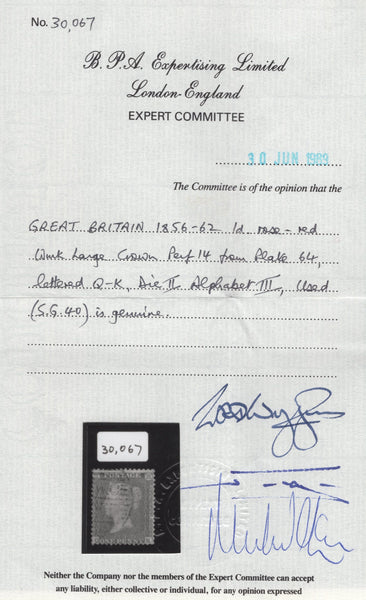 No. 30,067
B.P.A. Expertising Limited
London-England
EXPERT COMMITTEE
30 JUN 1989
The Committee is of the opinion that the
GREAT BRITAIN 1856-62 1d rose-red
Wmk Large Crown Perf 14 from Plate 64,
lettered Q-K, Die II Alphabet III, Used
(S.G.40) is genuine.
30,067
POSTAGE
ONE PENNY
Neither the Company nor the members of the Expert Committee can accept
any liability, either collective or individual, for any opinion expressed